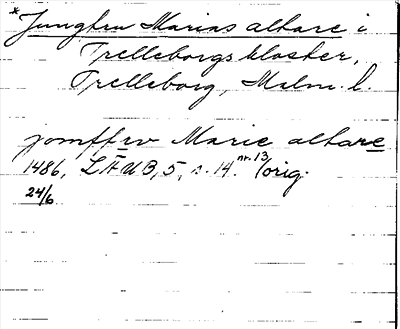 *Jungfru Marias altare i
Trelleborgs kloster,
Trelleborg, Malm. l.
jomffrv Marie altare
1486, LÄUB, 5, s. 14. nr. 13 / orig.
24/6